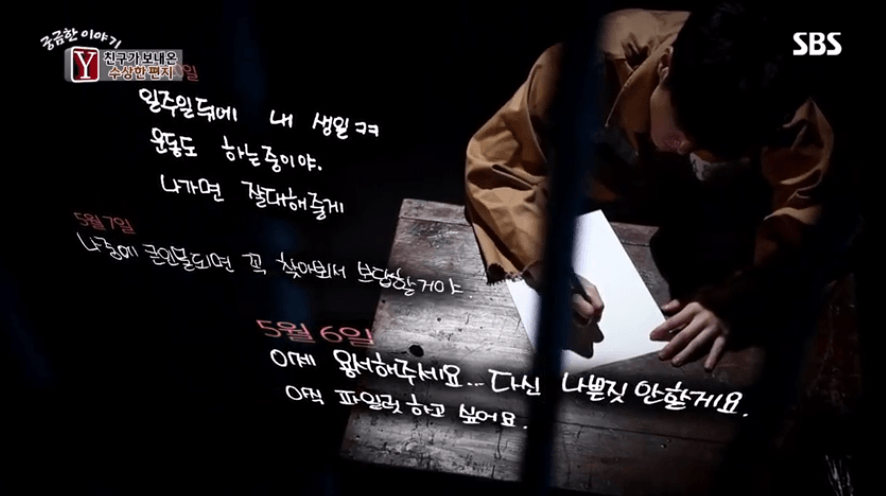 궁금한 이야기
Y
친구가 보내온
수상한 편지
SBS
일주일뒤에 내 생일ㅋㅋ
운동도 하는중이야.
나가면 잘대해줄게
5월 7일
나중에 큰인물되면 꼭 찾아뵈서 보답할거야
5월 6일
이제 용서해주세요... 다신 나쁜짓 안할게요.
아직 파일럿 하고 싶어요.